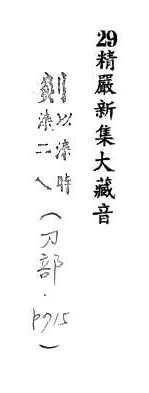 29精嚴新集大藏音
以漆時
漆二入
（刀部．p715）